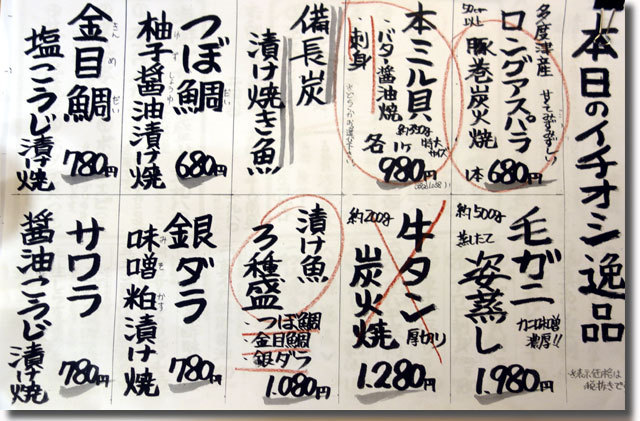 本日のイチオシ逸品
多度津産
甘くてみずみずしい
ロングアスパラ
50cm以上
豚巻炭火焼
1本 680円
本ミル貝
約350g
特大サイズ
・バター醤油焼
・刺身
各1ケ
980円
備長炭
漬け焼き魚
つぼ鯛
だい
柚子醤油漬け焼
ゆず しょうゆ
680円
金目鯛
きん め だい
塩こうじ漬け焼
780円
毛ガニ
カニ味噌濃厚!!
約500g
蒸したて
姿蒸し
1.980円
牛タン
厚切り
約200g
炭火焼
1.280円
漬け魚
3種盛
・つぼ鯛
・金目鯛
・銀ダラ
1.080円
銀ダラ
味噌粕漬け焼
み そ かす
780円
サワラ
醤油こうじ漬け焼
780円
※表示価格は
税抜きで